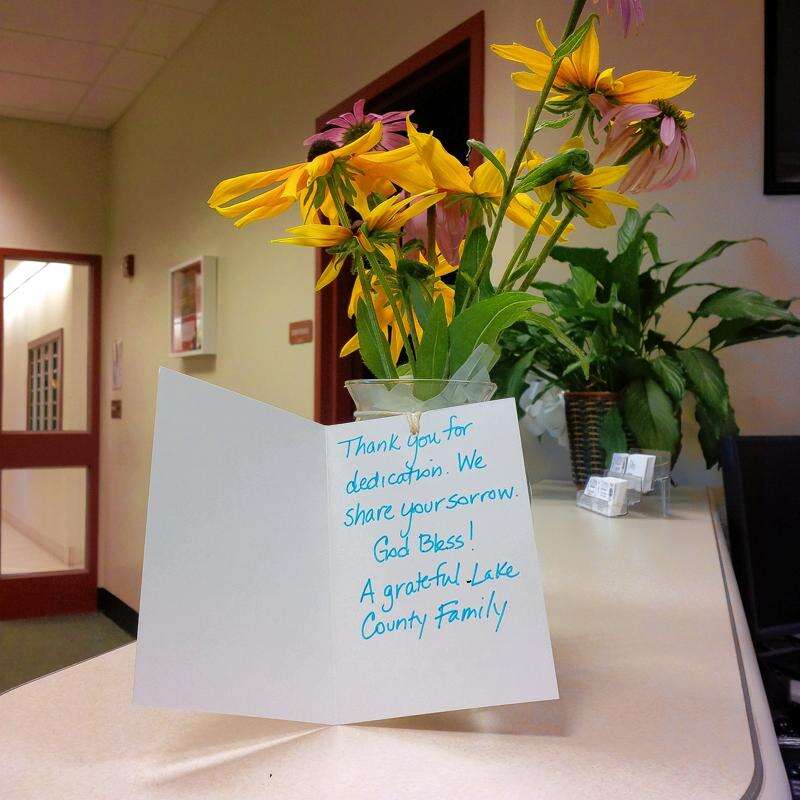 Thank you for
dedication. We
share your sorrow.
God Bless!
A grateful Lake
County Family